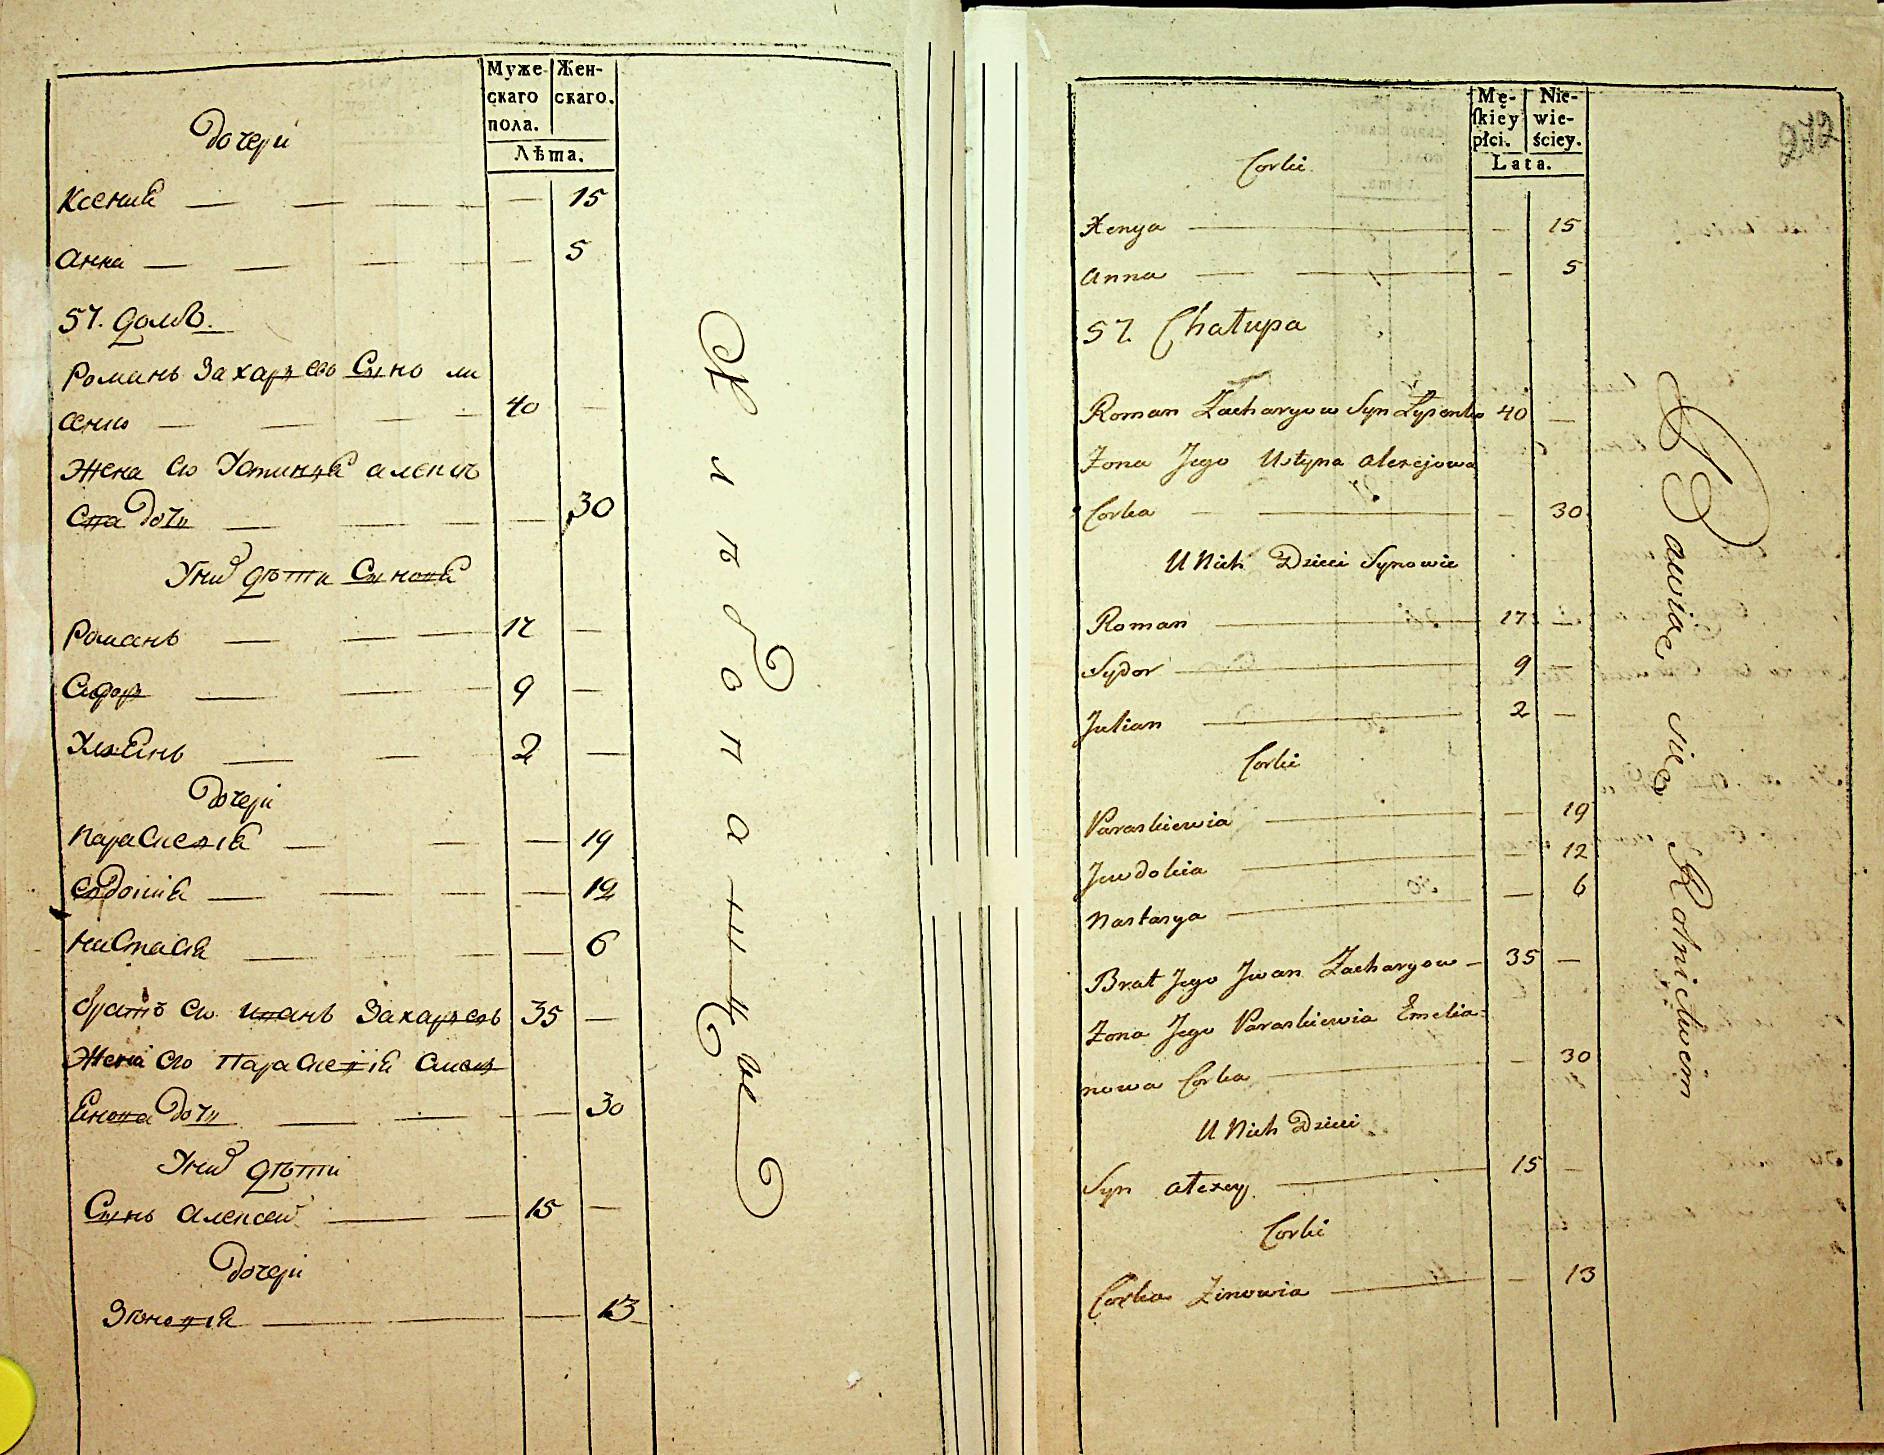 Муже-
скаго
пола.
Жен-
скаго.
Лѣта.
дочери
Ксения — — — — 15
Анна — — — — 5
57. домъ.
Романъ Захарьевъ Сынъ Ли
сенко — — — 40 —
Жена его Устиния Алексѣ
ева дочь — — — — 30
У нихъ дѣти Сыновья
Романъ — — — 17 —
Сидоръ — — — 9 —
Улиянъ — — 2 —
дочери
Параскевия — — — 19
Евдокия — — — — 12
Настасия — — — — 6
братъ его Иванъ Захарьевъ 35 —
Жена его Параскевия Емель
янова дочь — — — 30
У нихъ дѣти
Сынъ Алексей — — 15 —
дочери
Зѣновия — — — 13
Хлѣбопашцы
Mę-
skiey
płci.
Nie-
wie-
ściey.
Lata.
272
Corki
Xenya — — 15
Anna — — — 5
57. Chałupa
Roman Zacharyow Syn Łysenko 40 —
Zona Jego Ustyna Alexejowa
Corka — — — 30
U Nich Dzieci Synowie
Roman — 17 —
Sydor — 9 —
Julian — 2 —
Corki
Paraskiewia — — 19
Jewdokia — — 12
Nastasya — — 6
Brat Jego Jwan Zacharyow — 35 —
Zona Jego Paraskiewia Emelia-
nowa Corka — — 30
U Nich Dzieci
Syn Alexey — 15 —
Corki
Corka Zinowia — — 13
Bawiac sie Rolnictwem